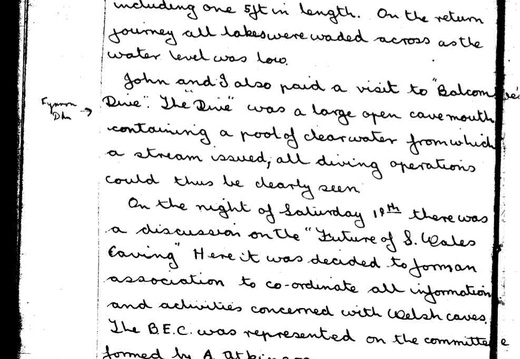 including one 5ft in length. On the return
journey all lakes were waded across as the
water level was low.
John and I also paid a visit to "Balcombe's
Dive". The "Dive" was a large open cave mouth
containing a pool of clear water from which
a stream issued, all diving operations
could thus be clearly seen
On the night of Saturday 19th there was
a discussion on the "Future of S. Wales
Caving" Here it was decided to form an
association to co-ordinate all information
and activities concerned with Welsh caves.
The B.E.C. was represented on the committee
formed by A. Atkinson